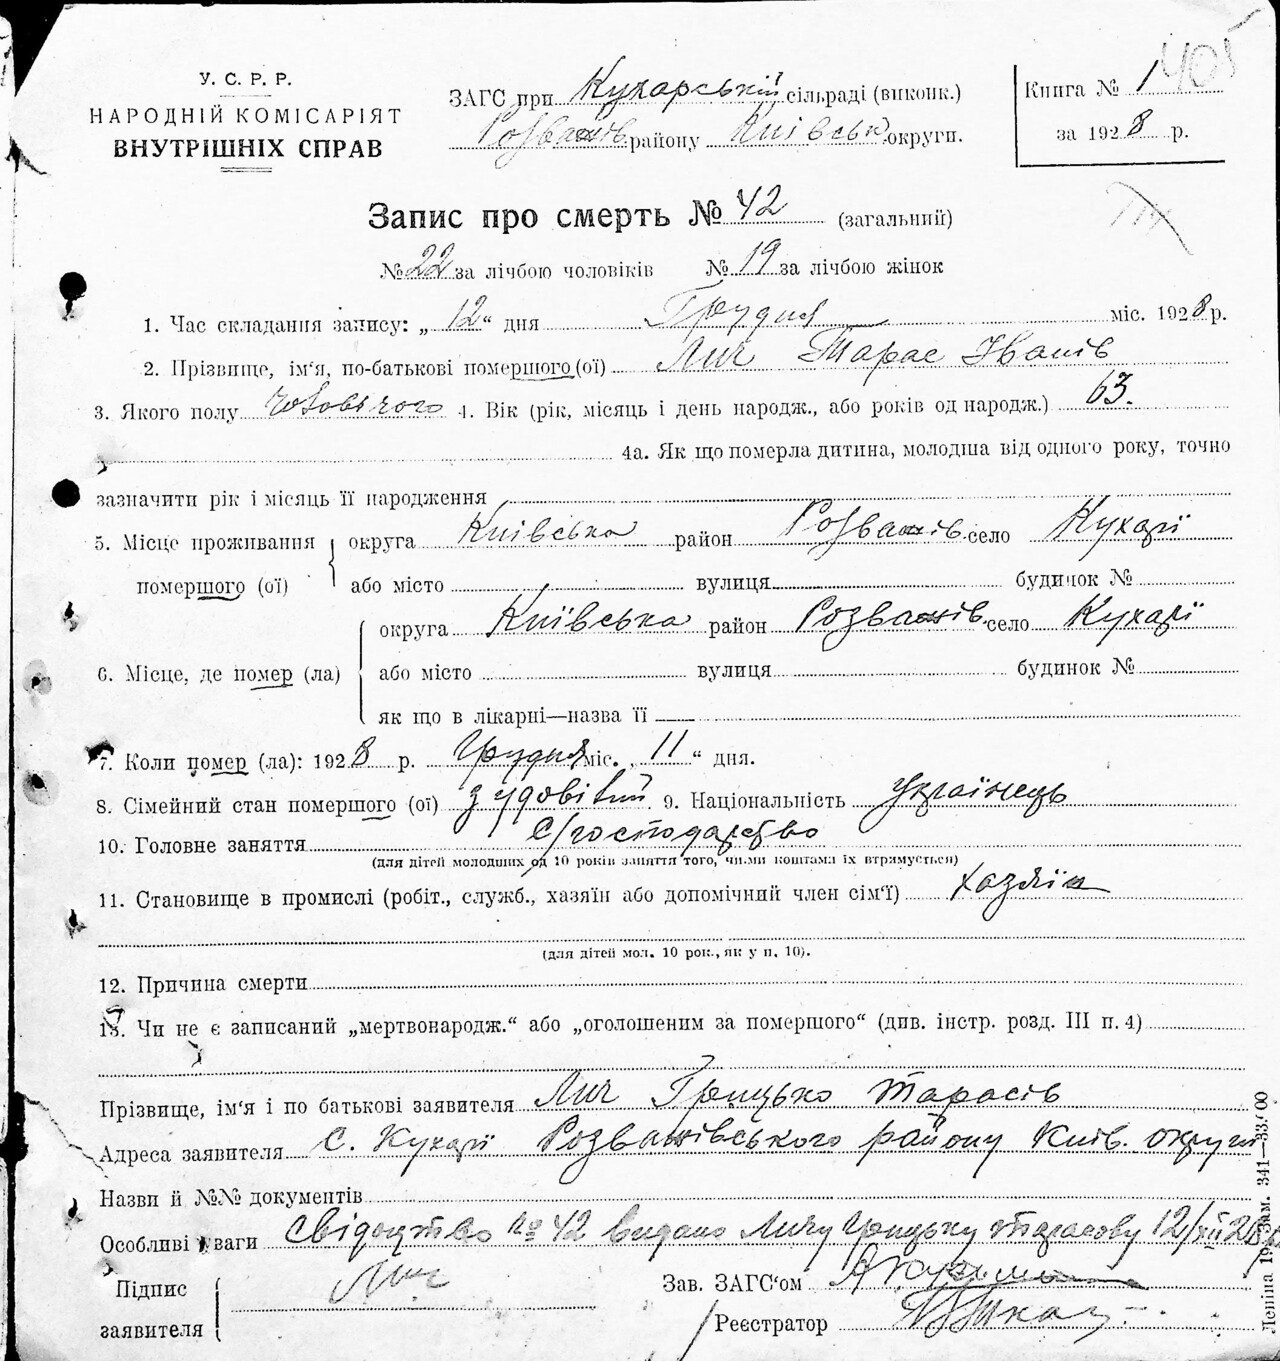 405
У. С. Р. Р.
НАРОДНІЙ КОМІСАРІЯТ
ВНУТРІШНІХ СПРАВ
ЗАГС при Кухарській сільраді (виконк.)
Розважів. району Київськ. округи.
Книга № 1
за 1928 р.
Запис про смерть № 42 (загальний)
№ 22 за лічбою чоловіків № 19 за лічбою жінок
1. Час складання запису: „12“ дня Грудня міс. 1928 р.
2. Прізвище, ім'я, по-батькові помершого (ої) Лич Тарас Іванів
3. Якого полу чоловічого 4. Вік (рік, місяць і день народж., або років од народж.) 63.
4а. Як що померла дитина, молодша від одного року, точно
зазначити рік і місяць її народження
5. Місце проживання помершого (ої) округа Київська район Розважів. село Кухарі
або місто вулиця будинок №
6. Місце, де помер (ла) округа Київська район Розважів. село Кухарі
або місто вулиця будинок №
як що в лікарні—назва її —
7. Коли помер (ла): 1928 р. Грудня міс. „11“ дня.
8. Сімейний стан помершого (ої) удовівий 9. Національність Українець
10. Головне заняття с/господарство
(для дітей молодших од 10 років заняття того, чиїми коштами їх втримується)
11. Становище в промислі (робіт., служб., хазяїн або допомічний член сім'ї) хазяїн
(для дітей мол. 10 рок., як у п. 10).
12. Причина смерти
13. Чи не є записаний „мертвонародж.“ або „оголошеним за помершого“ (див. інстр. розд. III п. 4)
Прізвище, ім'я і по батькові заявителя Лич Грицько Тарасів
Адреса заявителя с. Кухарі Розважівського району Київ. округи
Назви й №№ документів
Особливі уваги Свідоцтво № 42 видано Личу Грицьку Тарасову 12/XII 28 р.
Підпис заявителя Лич
Зав. ЗАГС'ом
Реєстратор
Леніна 19 Зам. 341—33.